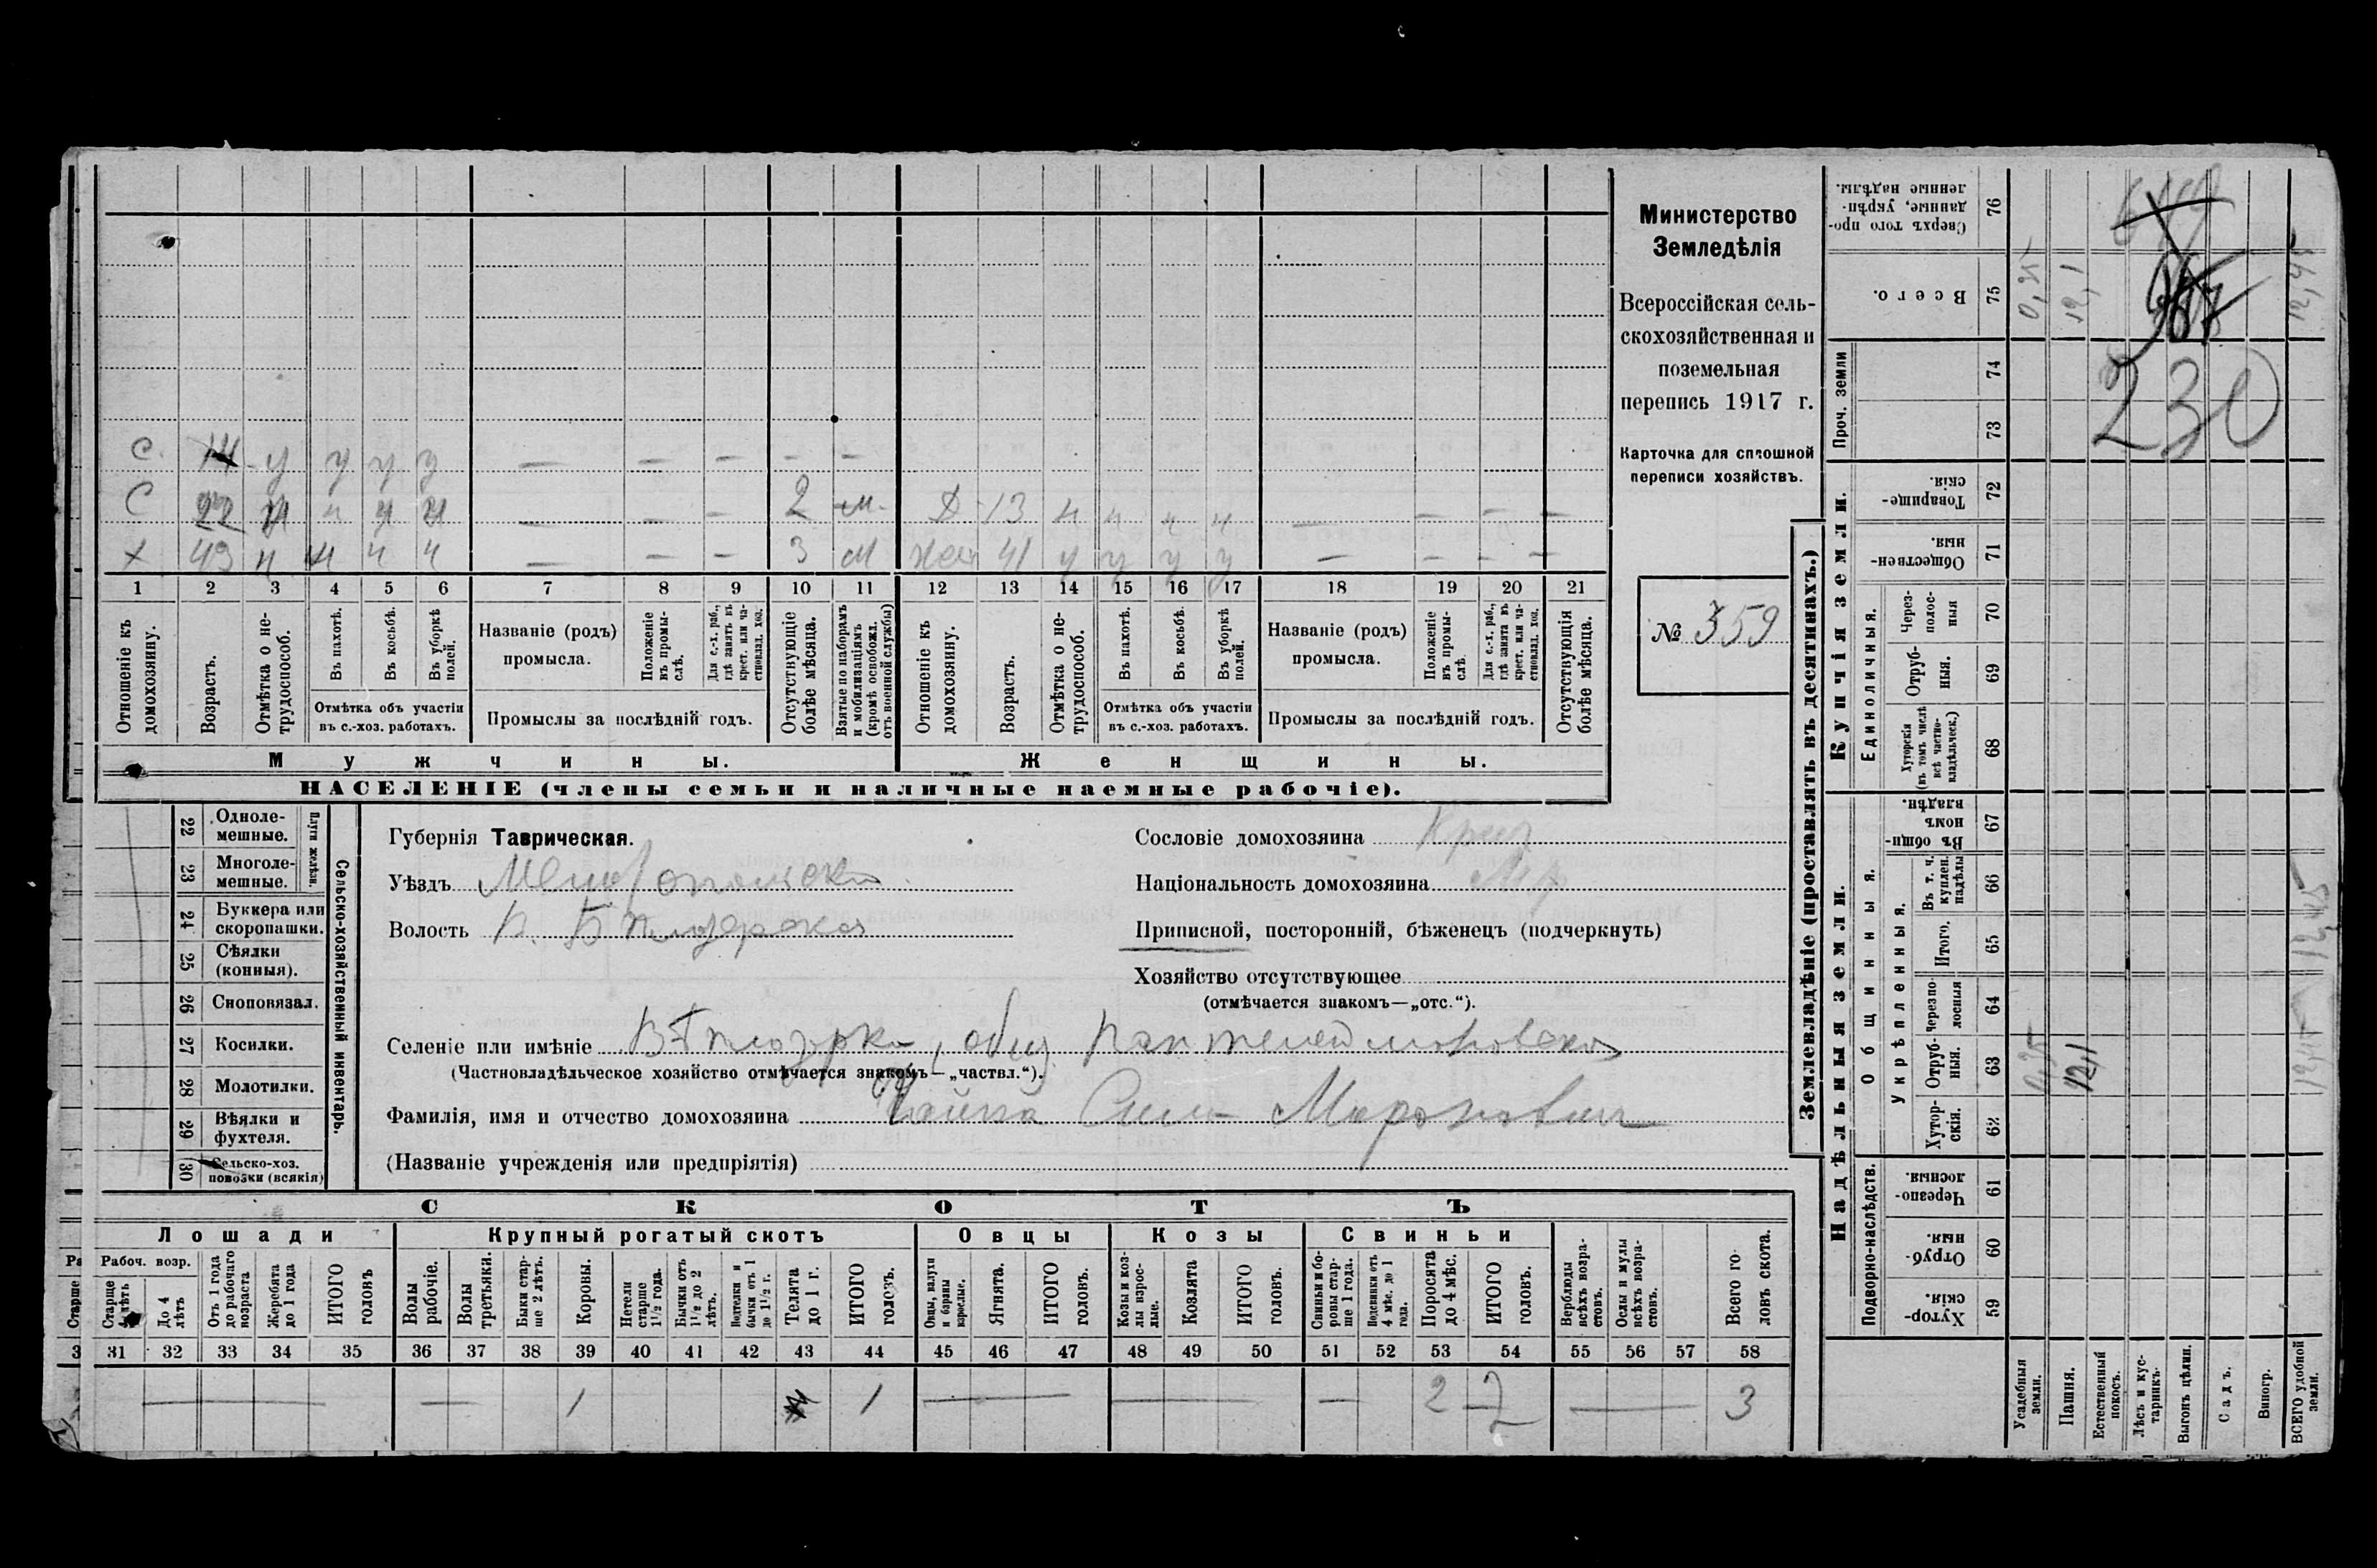 Министерство
Земледѣлія
Всероссійская сель-
скохозяйственная и
поземельная
перепись 1917 г.
Карточка для сплошной
переписи хозяйствъ.
№ 359
С. 14 у у у у — — — — —
С 22 н н н н — — — 2 м. Д 13 н н н н — — — —
х 43 н н н н — — — 3 м жен 41 у у у у — — — —
1 2 3 4 5 6 7 8 9 10 11 12 13 14 15 16 17 18 19 20 21
Отношеніе къ домохозяину.
Возрастъ.
Отмѣтка о не-трудоспособ.
Въ пахотѣ.
Въ косьбѣ.
Въ уборкѣ полей.
Отмѣтка объ участіи
въ с.-хоз. работахъ.
Названіе (родъ)
промысла.
Положеніе въ промы-слѣ.
Для с.-х. раб., гдѣ занятъ въ крест. или ча-стновлад. хоз.
Промыслы за послѣдній годъ.
Отсутствующіе болѣе мѣсяца.
Взятые по наборамъ и мобилизаціямъ (кромѣ освобожд. отъ военной службы)
Отношеніе къ домохозяину.
Возрастъ.
Отмѣтка о не-трудоспособ.
Въ пахотѣ.
Въ косьбѣ.
Въ уборкѣ полей.
Отмѣтка объ участіи
въ с.-хоз. работахъ.
Названіе (родъ)
промысла.
Положеніе въ промы-слѣ.
Для с.-х. раб., гдѣ занята въ крест. или ча-стновлад. хоз.
Промыслы за послѣдній годъ.
Отсутствующія болѣе мѣсяца.
Мужчины.
Женщины.
НАСЕЛЕНІЕ (члены семьи и наличные наемные рабочіе).
22 Одноле-мешные.
23 Многоле-мешные.
Плуги желѣзн.
24 Буккера или скоропашки.
25 Сѣялки (конныя).
26 Сноповязал.
27 Косилки.
28 Молотилки.
29 Вѣялки и фухтеля.
30 Сельско-хоз. повозки (всякія)
Сельско-хозяйственный инвентарь.
Губернія Таврическая.
Уѣздъ
Волость
Сословіе домохозяина Крес
Національность домохозяина
Приписной, посторонній, бѣженецъ (подчеркнуть)
Хозяйство отсутствующее
(отмѣчается знакомъ—„отс.“).
Селеніе или имѣніе
(Частновладѣльческое хозяйство отмѣчается знакомъ—„частвл.“).
Фамилія, имя и отчество домохозяина Чайка Сила Миронович
(Названіе учрежденія или предпріятія)
СКОТЪ
Лошади
Крупный рогатый скотъ
Овцы
Козы
Свиньи
Рабоч. возр.
Старше 4 лѣтъ
До 4 лѣтъ
Отъ 1 года до рабочаго возраста
Жеребята до 1 года
ИТОГО головъ
Волы рабочіе.
Волы третьяки.
Быки стар-ше 2 лѣтъ.
Коровы.
Нетели старше 1½ года.
Бычки отъ 1½ до 2 лѣтъ.
Нетелки и бычки отъ 1 до 1½ г.
Телята до 1 г.
ИТОГО головъ.
Овцы, валухи и бараны взрослые.
Ягнята.
ИТОГО головъ.
Козы и коз-лы взрос-лые.
Козлята
ИТОГО головъ.
Свиньи и бо-ровы стар-ше 1 года.
Подсвинки отъ 4 мѣс. до 1 года.
Поросята до 4 мѣс.
ИТОГО головъ.
Верблюды всѣхъ возра-стовъ.
Ослы и мулы всѣхъ возра-стовъ.
Всего го-ловъ скота.
31 32 33 34 35 36 37 38 39 40 41 42 43 44 45 46 47 48 49 50 51 52 53 54 55 56 57 58
— — 1 1 — — — 2 2 — 3
Землевладѣніе (проставлять въ десятинахъ.)
Надѣльныя земли.
Купчія земли.
Проч. земли
Подворно-наслѣдств.
Общинныя.
Укрѣпленныя.
Единоличныя.
59 Хутор-скія.
60 Отруб-ныя.
61 Черезпо-лосныя.
62 Хутор-скія.
63 Отруб-ныя. 0,35 12,1 12,45
64 Черезпо-лосныя
65 Итого.
66 Въ т. ч. куплен. надѣлы
67 Въ общи-номъ владѣн.
68 Хуторскія (въ томъ числѣ всѣ частно-владѣльческ.)
69 Отруб-ныя.
70 Через-полос-ныя
71 Обществен-ныя.
72 Товарище-скія.
73
74
75 Всего. 0,35 12,1 12,45
76 Сверхъ того про-данные, укрѣп-ленные надѣлы.
230
Усадебныя земли.
Пашня.
Естественный покосъ.
Лѣсъ и кус-тарникъ.
Выгонъ цѣлин.
Садъ.
Виногр.
ВСЕГО удобной земли.